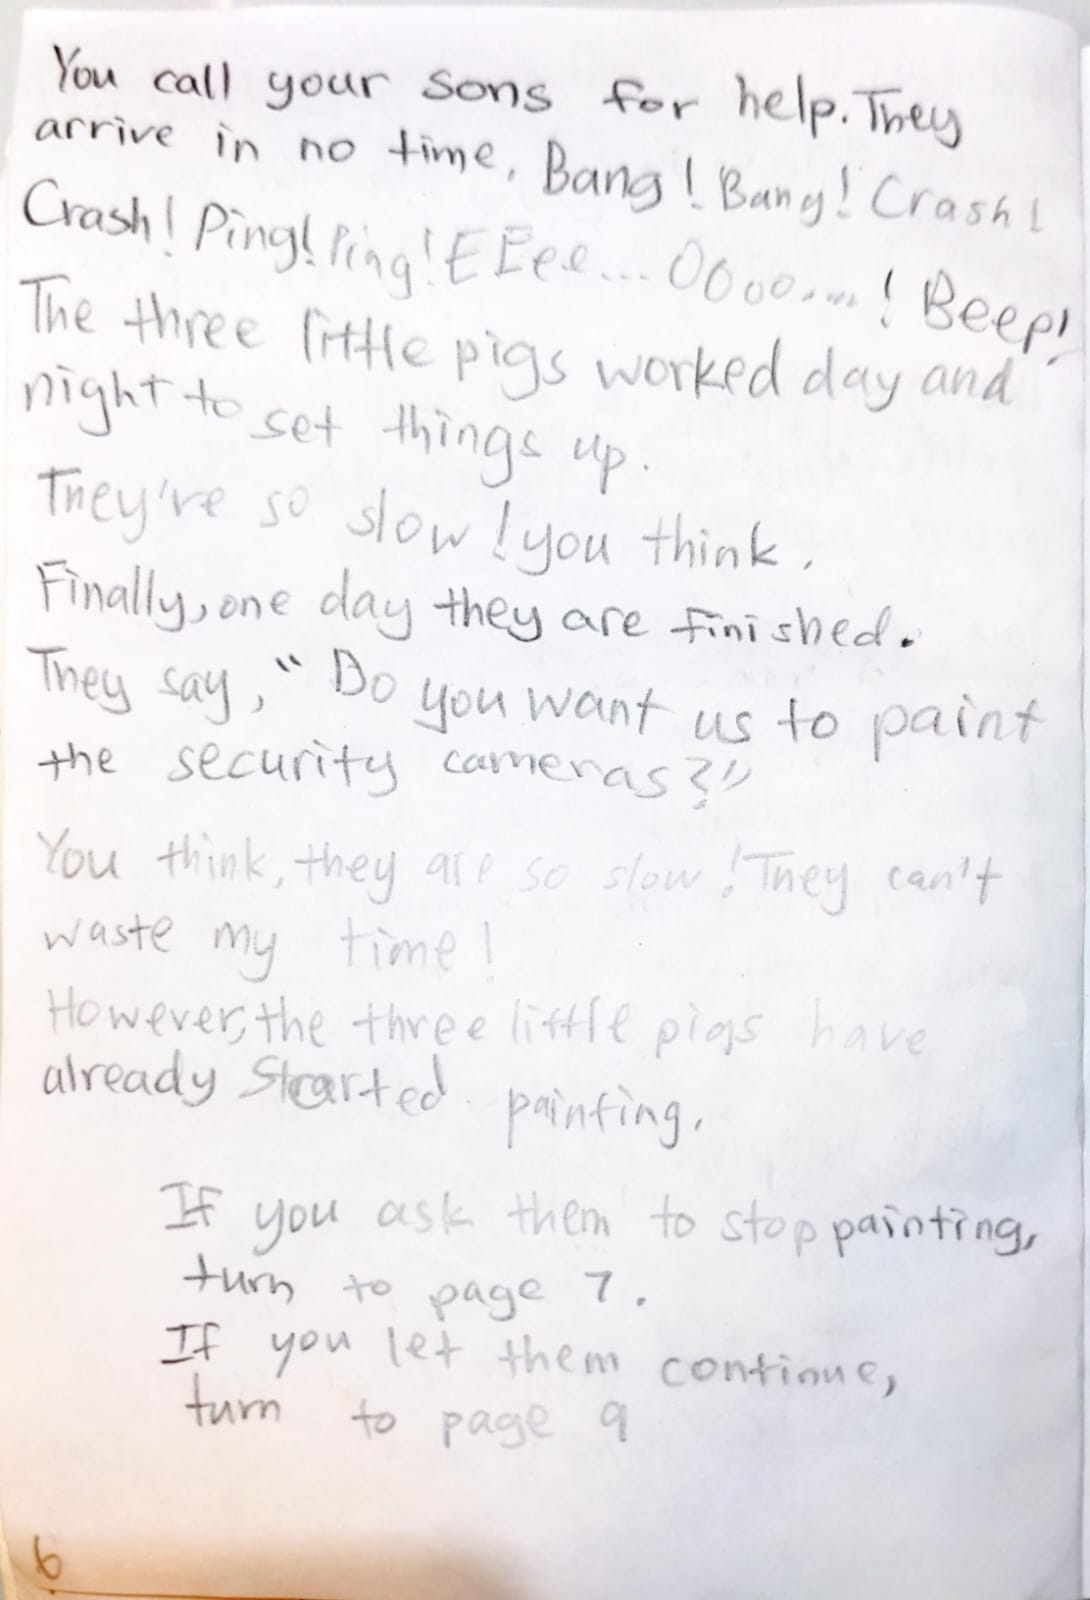 You call your sons for help. They
arrive in no time. Bang! Bang! Crash!
Crash! Ping! Ping! EEee... OOoo....! Beep!
The three little pigs worked day and
night to set things up.
They're so slow! you think.
Finally, one day they are finished.
They say, "Do you want us to paint
the security cameras?"
You think, they are so slow! They can't
waste my time!
However, the three little pigs have
already started painting.
If you ask them to stop painting,
turn to page 7.
If you let them continue,
turn to page 9
6